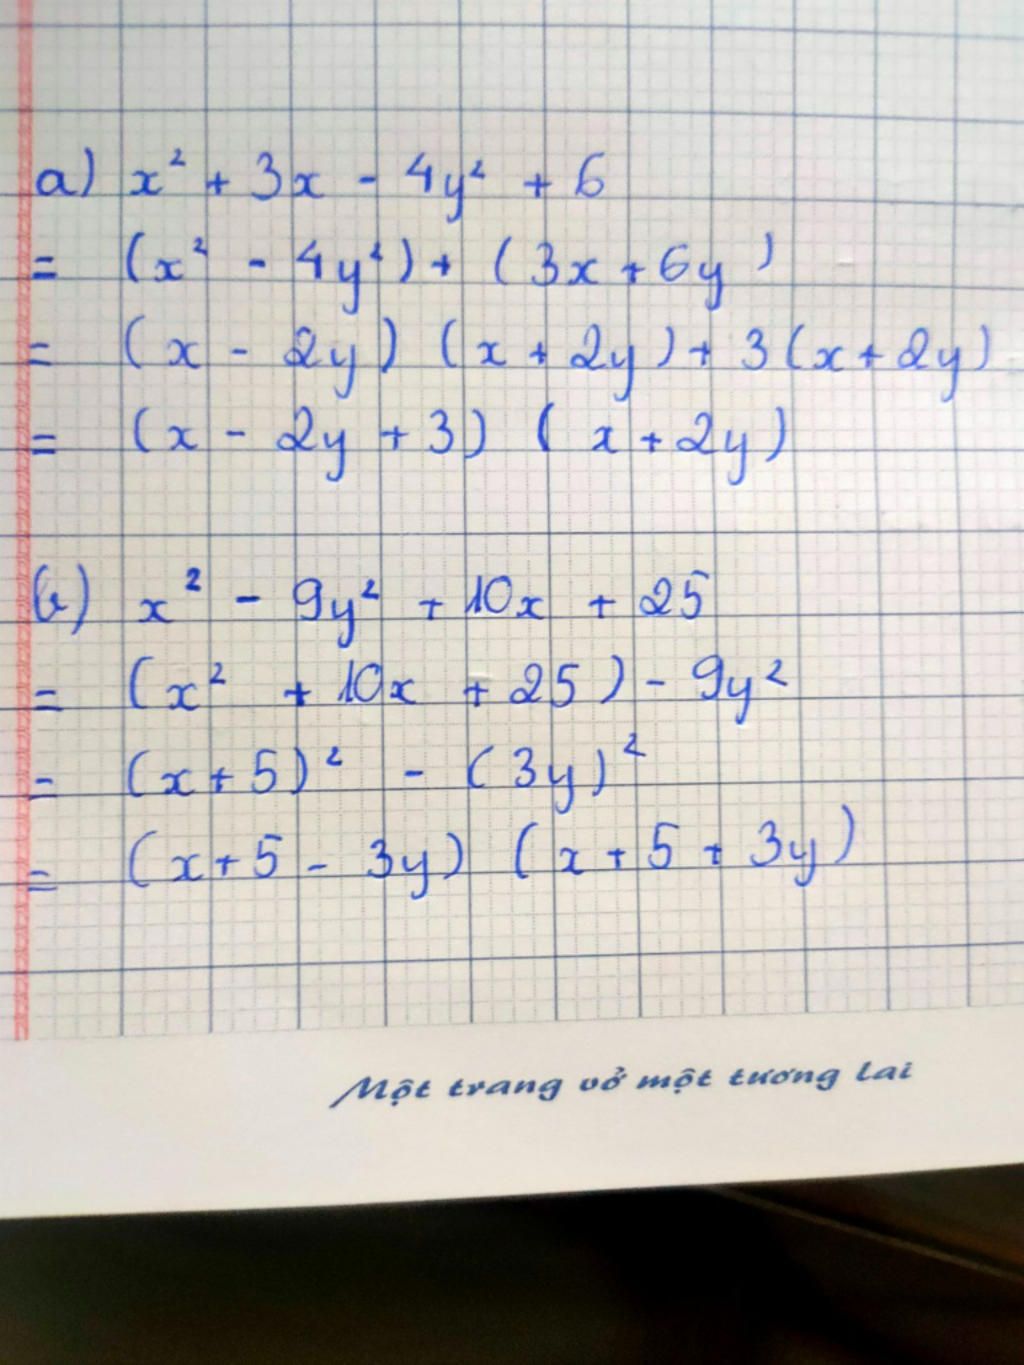 a) x² + 3x - 4y² + 6
= (x² - 4y²) + (3x + 6y)
= (x - 2y) (x + 2y) + 3(x + 2y)
= (x - 2y + 3) (x + 2y)
b) x² - 9y² + 10x + 25
= (x² + 10x + 25) - 9y²
= (x + 5)² - (3y)²
= (x + 5 - 3y) (x + 5 + 3y)
Một trang vở một tương lai